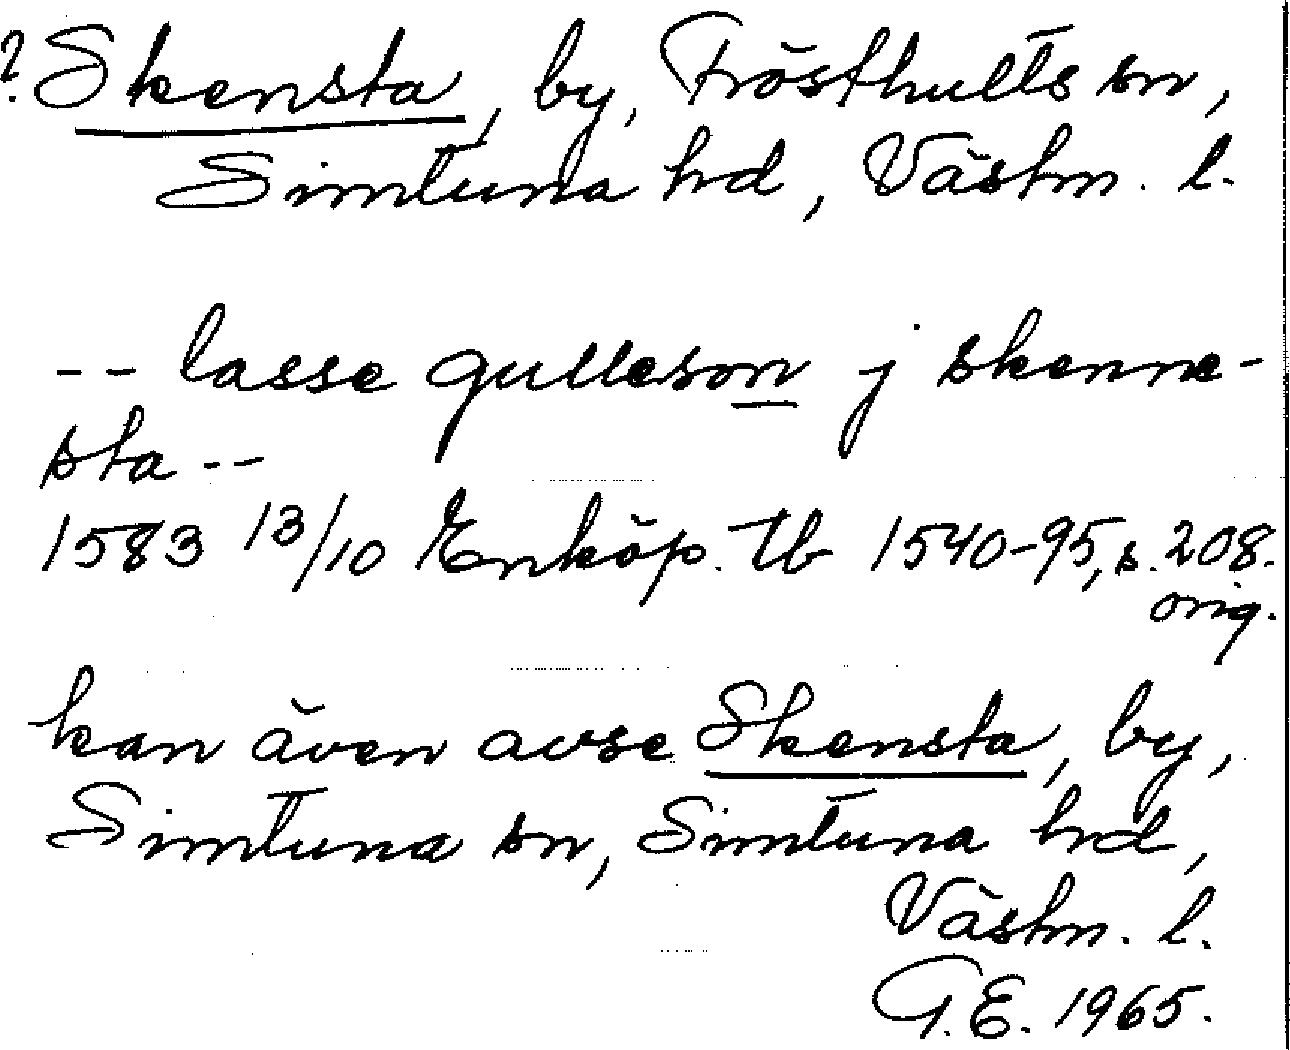 ? Skensta, by, Frösthults sn,
Simtuna hd, Västm. l.
-- lasse gulleson j skenne-
sta --
1583 13/10 Enköp. tb 1540-95, s. 208.
orig.
kan även avse Skensta, by,
Simtuna sn, Simtuna hd,
Västm. l.
G.E. 1965.